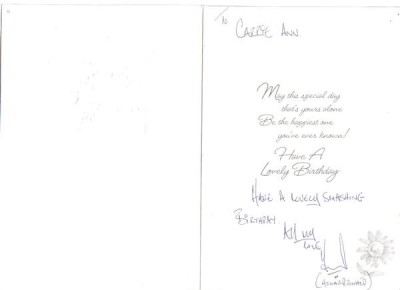 To
CARRIE ANN
May this special day
that's yours alone
Be the happiest one
you've ever known!
Have A
Lovely Birthday
HAVE A LOVELY SMASHING
BIRTHDAY
All my
love